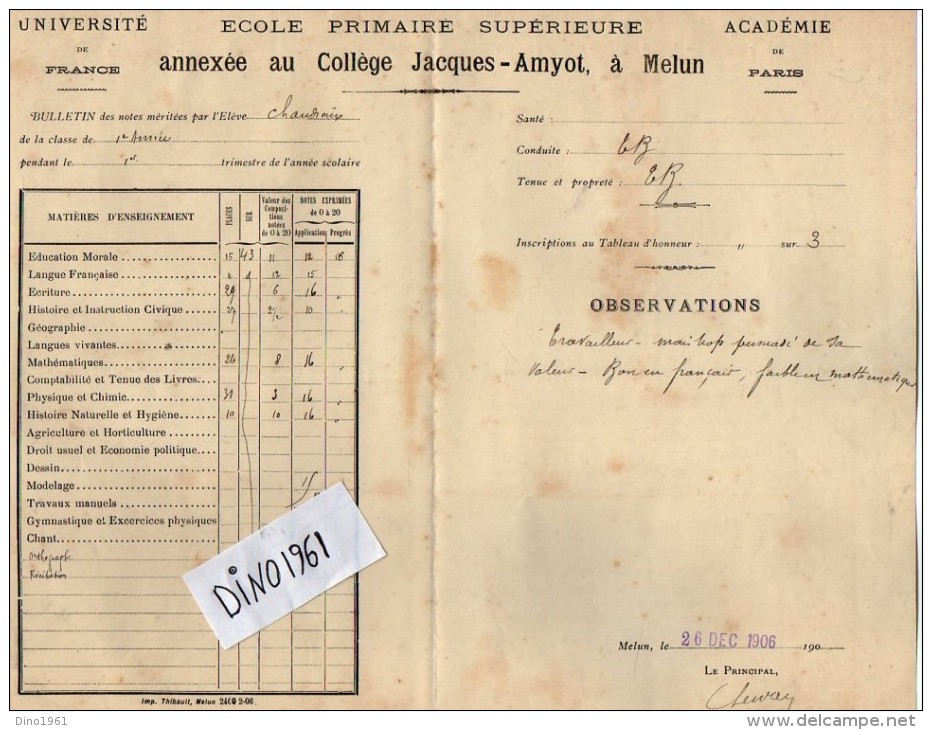 UNIVERSITÉ
DE
FRANCE
ECOLE PRIMAIRE SUPÉRIEURE
annexée au Collège Jacques-Amyot, à Melun
ACADÉMIE
DE
PARIS
BULLETIN des notes méritées par l'Elève
de la classe de 1re Année
pendant le 1er trimestre de l'année scolaire
MATIÈRES D'ENSEIGNEMENT PLACES SUR Valeur des Compositions notées de 0 à 20 NOTES EXPRIMÉES de 0 à 20 Application Progrès
Education Morale 15 43 11 12
Langue Française 12 15
Ecriture 29 6 16 "
Histoire et Instruction Civique 27 2 1/2 10 "
Géographie
Langues vivantes
Mathématiques 26 8 16 "
Comptabilité et Tenue des Livres
Physique et Chimie 31 3 16 "
Histoire Naturelle et Hygiène 10 10 16 "
Agriculture et Horticulture
Droit usuel et Economie politique
Dessin
Modelage
Travaux manuels
Gymnastique et Excercices physiques
Chant
Orthographe
Récitation
DINO1961
Imp. Thibault, Melun 2400 2-06.
Santé :
Conduite : TB
Tenue et propreté : TB.
Inscriptions au Tableau d'honneur : " sur 3
OBSERVATIONS
Travailleur - mais trop persuadé de sa
valeur - Bon en français, faible en mathématiques
Melun, le 26 DEC 1906 190
LE PRINCIPAL,
Dino1961
www.delcampe.net